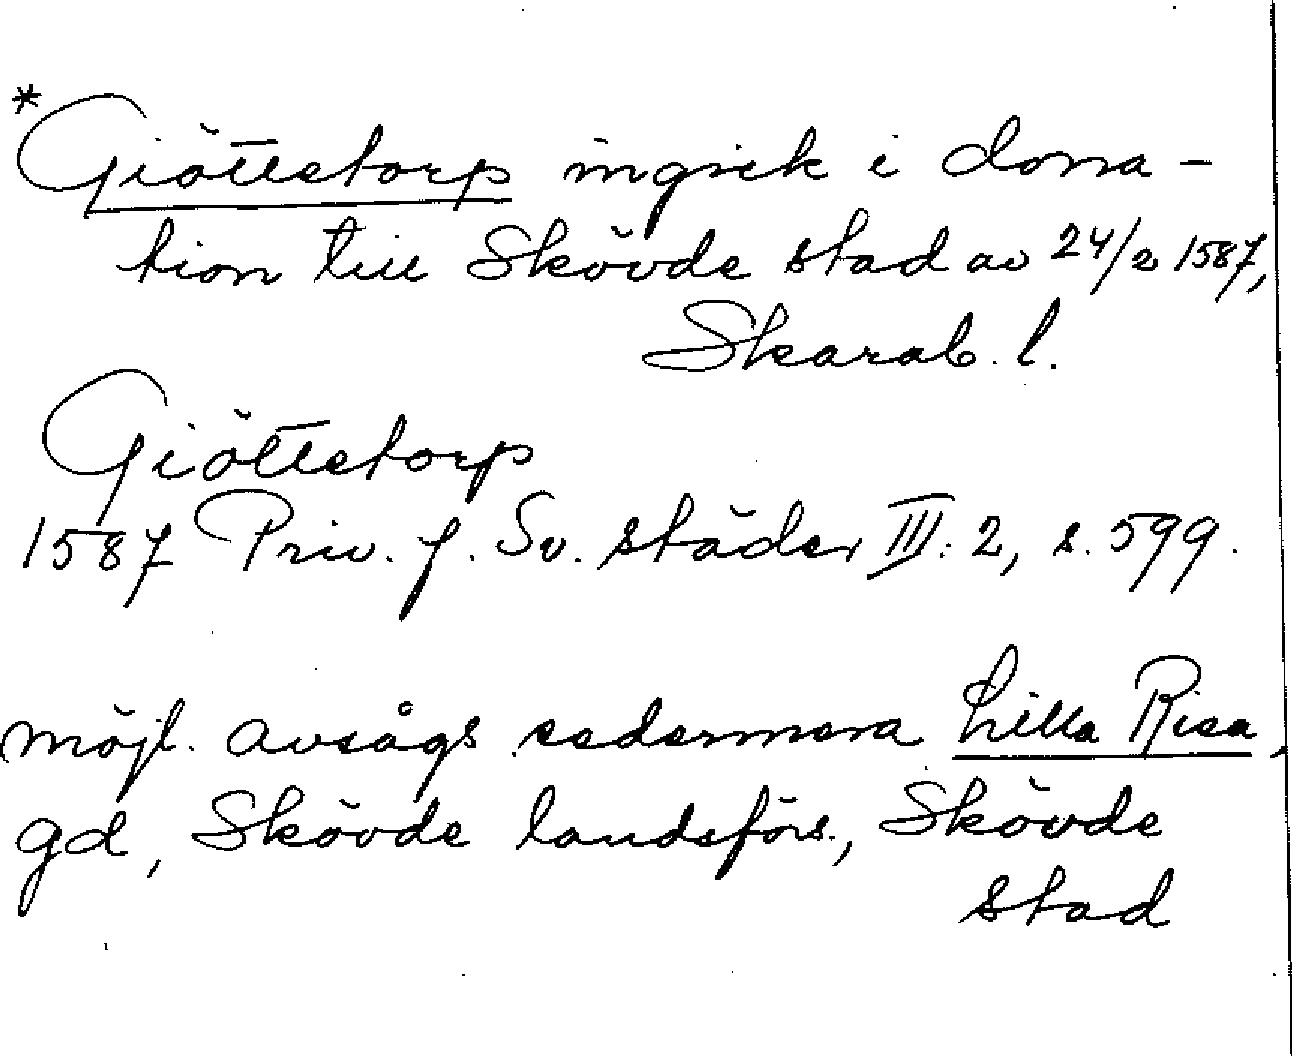 *Giöttetorp ingick i dona-
tion till Skövde stad av 24/2 1587,
Skarab. l.
Giöttetorp
1587 Priv. f. Sv. städer III: 2, s. 599.
möjl. avsågs sedermera Lilla Risa,
gd, Skövde landsförs., Skövde
stad